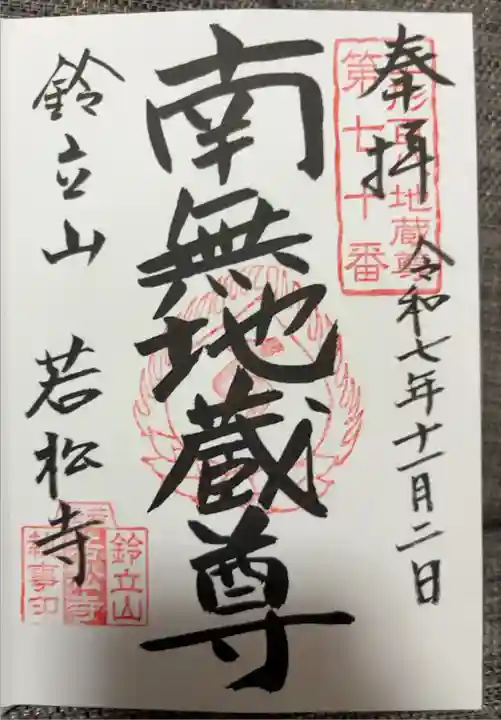 奉拝
令和七年十一月二日
山形百八地蔵尊
第七十番
南無地蔵尊
鈴立山 若松寺
鈴立山